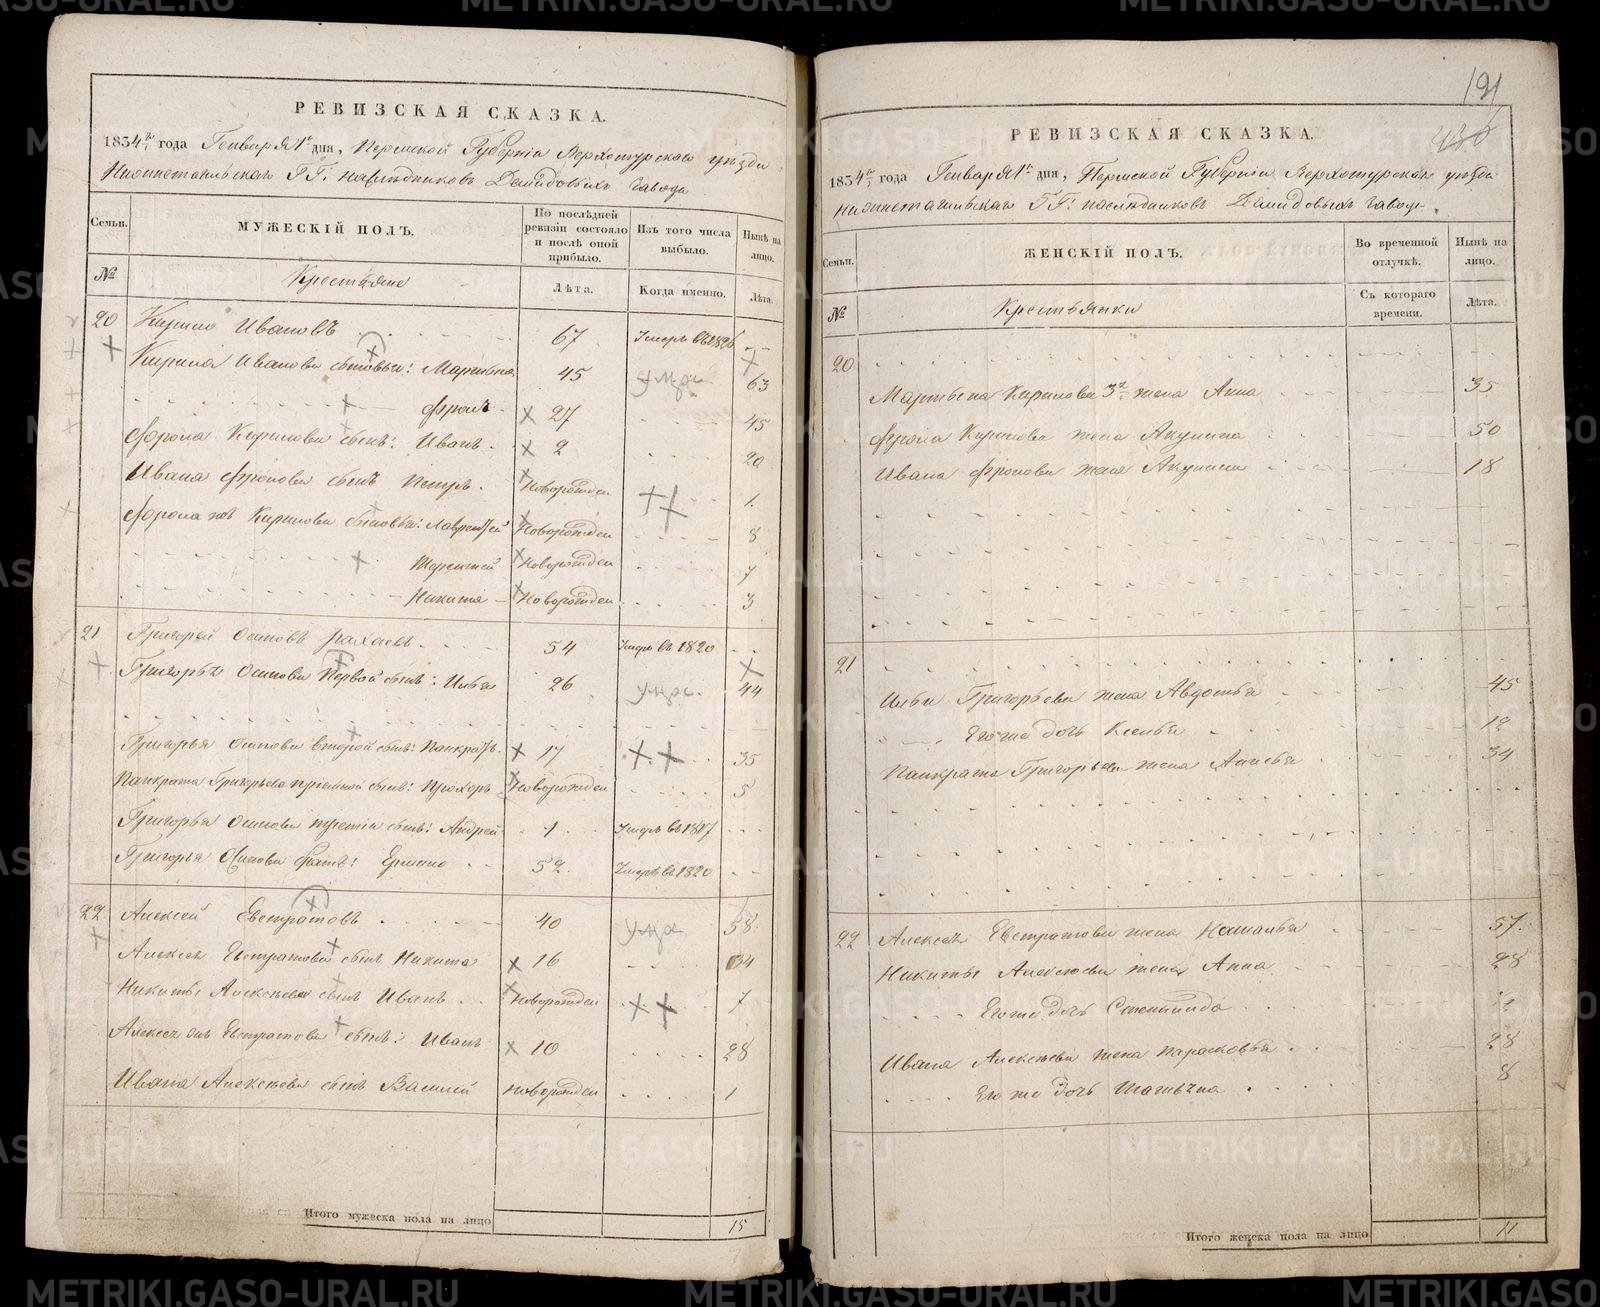 РЕВИЗСКАЯ СКАЗКА.
1834 го года Генваря 1 го дня, Пермской Губернии Верхотурскаго уезда
Нижнетагильскаго ГГ: наследников Демидовых завода
Семьи.
МУЖЕСКІЙ ПОЛЪ.
По послѣдней ревизіи состояло и послѣ оной прибыло.
Изъ того числа выбыло.
Нынѣ на лицо.
№
Крестьяне
Лѣта.
Когда именно.
Лѣта.
20 Кирило Ивановъ 67 Умеръ въ 1826
Кирила Иванова сыновья: Мартынъ 45 умре 63
Фролъ 27 45
Фрола Кирилова сынъ: Иванъ 2 20
Ивана Фролова сынъ Петръ Новорожден 1
Фрола жъ Кирилова сыновья: Лаврентей Новорожден 8
Терентей Новорожден 7
Никита Новорожден 3
21 Григорей Осиповъ 54 Умеръ въ 1820
Григорья Осипова Первой сынъ: Илья 26 умре 44
Григорья Осипова второй сынъ: Панкратъ 17 35
Панкрата Григорьева приемной сынъ: Прохоръ Новорожден 5
Григорья Осипова третiй сынъ: Андрей 1 Умеръ въ 1817
Григорья Осипова братъ: Ермило 52 Умеръ въ 1820
22 Алексей Евстратовъ 40 умре 58
Алексея Евстратова сынъ Никита 16 34
Никиты Алексеева сынъ Иванъ Новорожден 7
Алексея жъ Евстратова сынъ: Иванъ 10 28
Ивана Алексеева сынъ Василей Новорожден 1
Итого мужеска пола на лицо 15
191
РЕВИЗСКАЯ СКАЗКА.
1834 го года Генваря 1 го дня, Пермской Губернии Верхотурскаго уезда
Нижнетагильскаго ГГ: наследников Демидовых завода.
Семьи.
ЖЕНСКІЙ ПОЛЪ.
Во временной отлучкѣ.
Нынѣ на лицо.
№
Крестьянки
Съ котораго времени.
Лѣта.
20
Мартына Кирилова 3 я жена Анна 35
Фрола Кирилова жена Акулина 50
Ивана Фролова жена Акулина 18
21
Ильи Григорьева жена Авдотья 45
Его же дочь Ксенья 12
Панкрата Григорьева жена 34
22 Алексея Евстратова жена Наталья 57
Никиты Алексеева жена Анна 28
Его же дочь Степанида 2
Ивана Алексеева жена Парасковья 28
Его же дочь Татьяна 8
Итого женска пола на лицо 11
METRIKI.GASO-URAL.RU